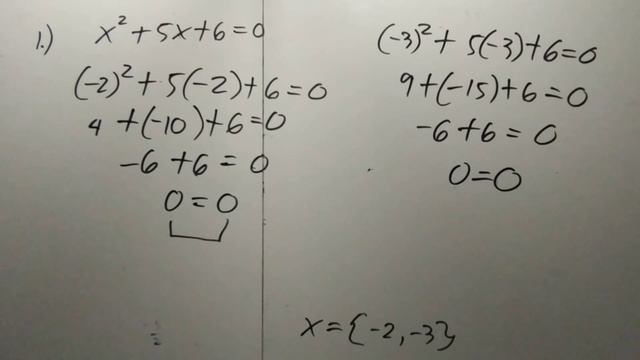 1.) x² + 5x + 6 = 0
(-2)² + 5(-2) + 6 = 0
4 + (-10) + 6 = 0
-6 + 6 = 0
0 = 0
(-3)² + 5(-3) + 6 = 0
9 + (-15) + 6 = 0
-6 + 6 = 0
0 = 0
x = {-2, -3}